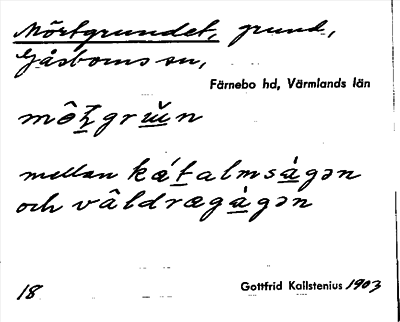 Mörtgrundet, grund,
Gåsborns sn,
Färnebo hd, Värmlands län
môt̠grŭ̠n
mellan kǽt̠almså̠gən
och vâldrægà̠gən
18 Gottfrid Kallstenius 1903